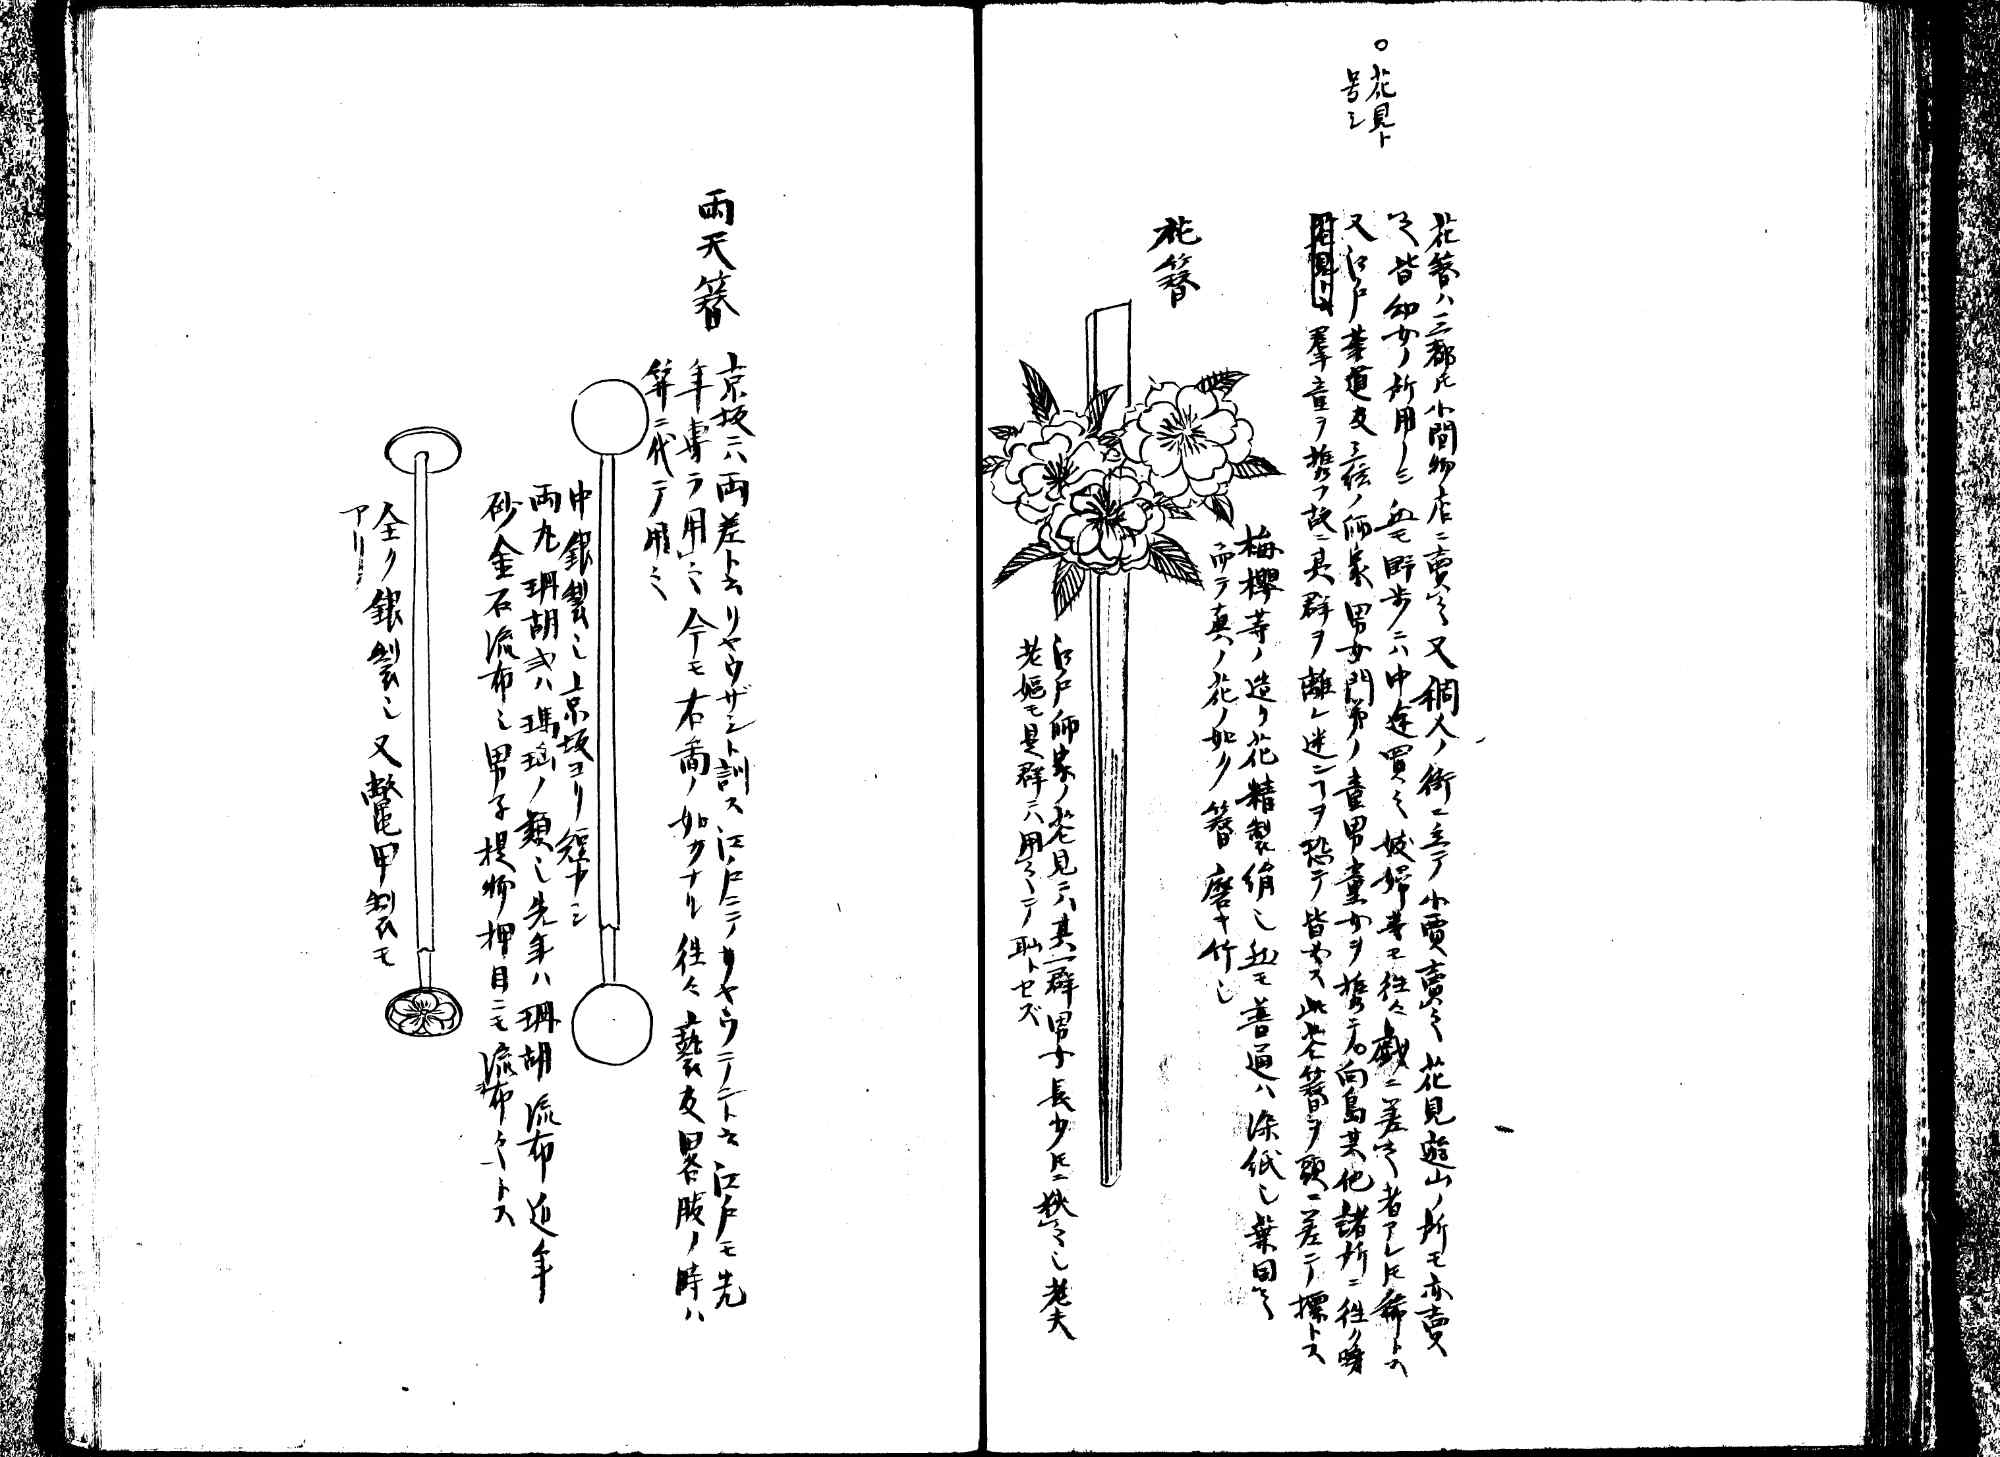 ○花見ト
号シ
花簪ハ三都トモ小間物店ニ賣之又稠人ノ街ニ立テ小賈賣之花見遊山ノ所モ亦賣
之皆幼女ノ所用ノミ然モ野歩ニハ中途買之妓婦等モ往々戯ニ差之者アレトモ稀トス
又江戸筆道及三絃ノ師家男女門弟ノ童男童女ヲ携テ向島其他諸所ニ往ク時
花見ト云羣童ヲ携フ故ニ其群ヲ離レ迷ンヿヲ恐テ皆必ス此花簪ヲ頭ニ差テ標トス
花簪
梅櫻等ノ造リ花精製絹也然モ普通ハ染紙也葉同之
而テ真ノ花ノ如ク簪磨キ竹也
江戸師家ノ花見ニハ其一群男女長少トモニ挾之也老夫
老嫗モ是群ニハ用之テ恥トセズ
両天簪
京坂ニハ両差ト云リヤウザシト訓ス江戸ニテリヤウテント云江戸モ先
年專ラ用之今モ右圖ノ如クナル往々藝者畧服ノ時ハ
笄ニ代テ用之
中銀製也京坂ヨリ短カシ
両丸珊胡或ハ瑪瑙ノ類也先年ハ珊胡流布近年
砂金石流布シ男子提物押目ニモ流布之トス
全ク銀製也又鼈甲製モ
アリ